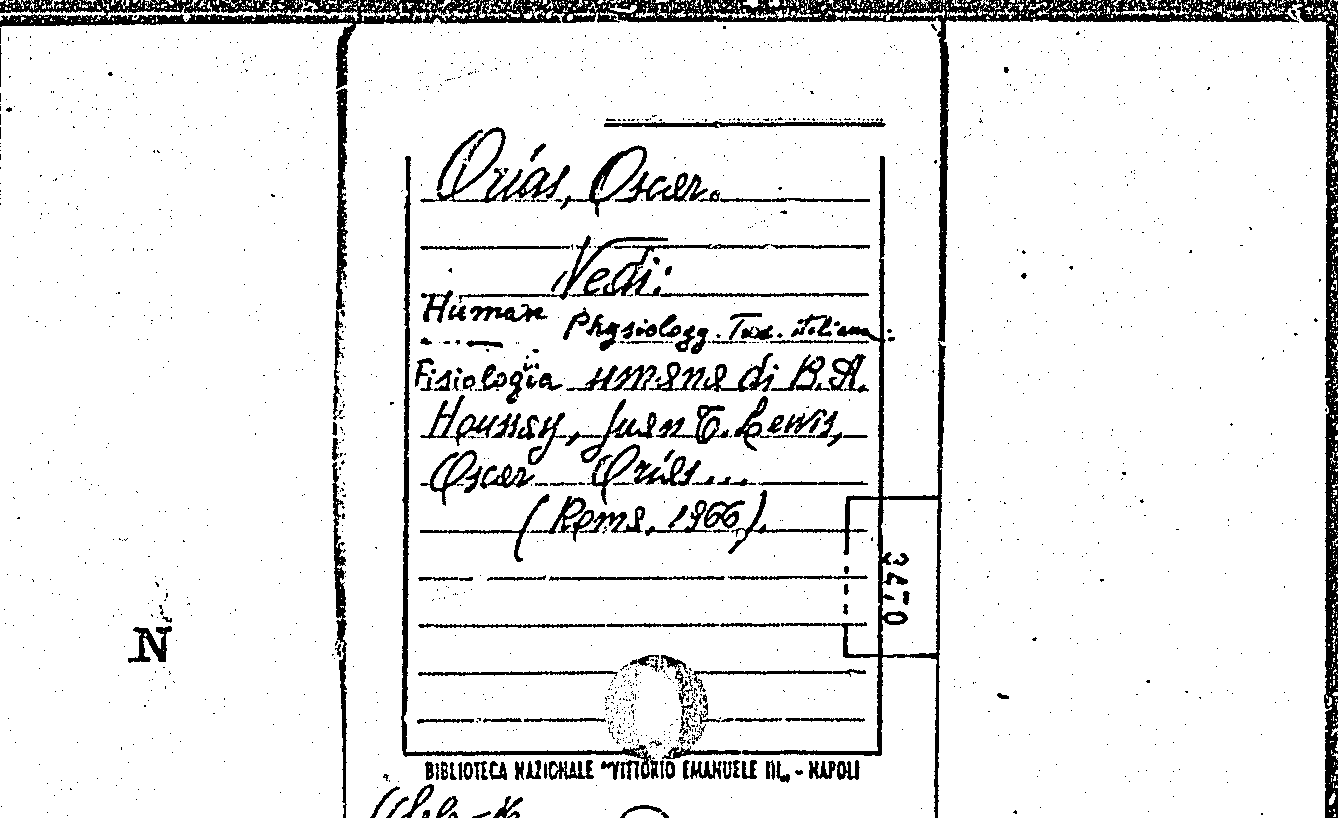 Orías, Oscar.
Vedi:
Human Physiology. Trad. italiana:
Fisiologia umana di B.A.
Houssay, Juan T. Lewis,
Oscar Oriás...
(Roma, 1966).
3470
N
BIBLIOTECA NAZIONALE "VITTORIO EMANUELE III„ - NAPOLI